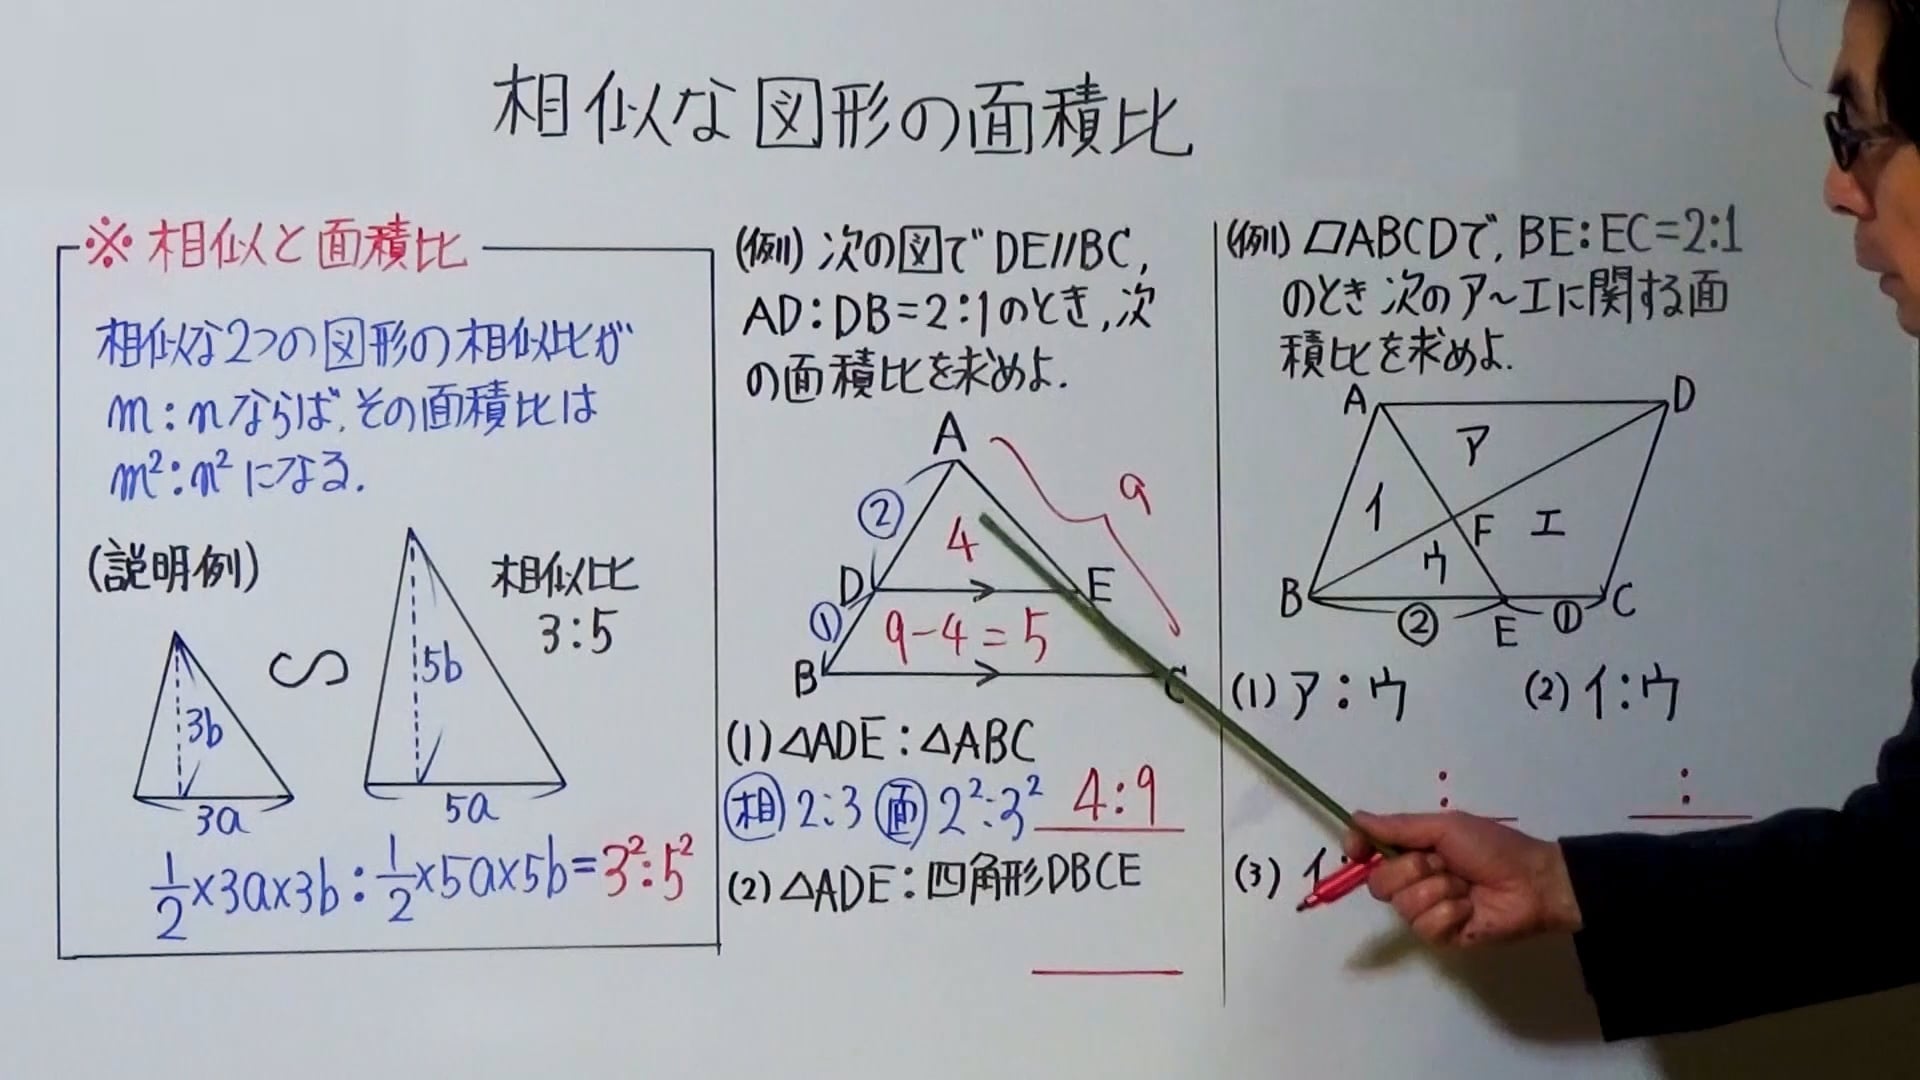 相似な図形の面積比
※相似と面積比
相似な2つの図形の相似比が
m:nならば,その面積比は
m²:n²になる.
(説明例)
相似比
3:5
3b
3a
∽
5b
5a
1/2×3a×3b:1/2×5a×5b=3²:5²
(例) 次の図でDE//BC,
AD:DB=2:1のとき,次
の面積比を求めよ.
A
②
4
9
D
E
①
9-4=5
B
C
(1)△ADE:△ABC
相 2:3 面 2²:3² 4:9
(2)△ADE:四角形DBCE
(例) ▱ABCDで,BE:EC=2:1
のとき次のア~エに関する面
積比を求めよ.
A
D
ア
イ
F
エ
ウ
B
②
E
①
C
(1)ア:ウ
(2)イ:ウ
:
:
(3)